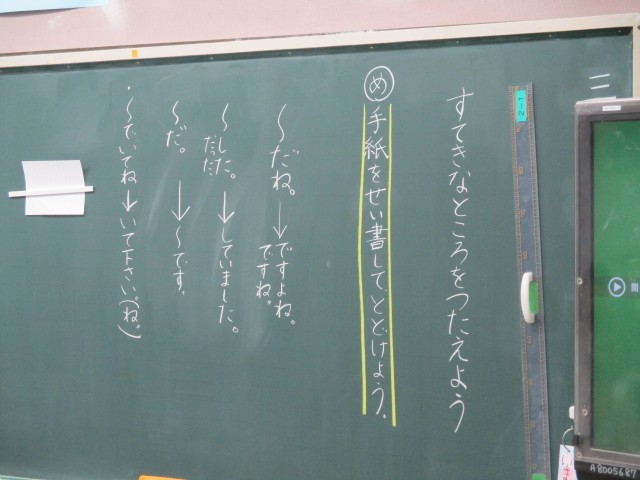 三
1-2
すてきなところをつたえよう
め 手紙をせい書して、とどけよう。
~だね。→ですよね。
ですね。
~した。→していました。
だった
~だ。→~です。
・~でいてね→いて下さい。(ね。)
A8005687